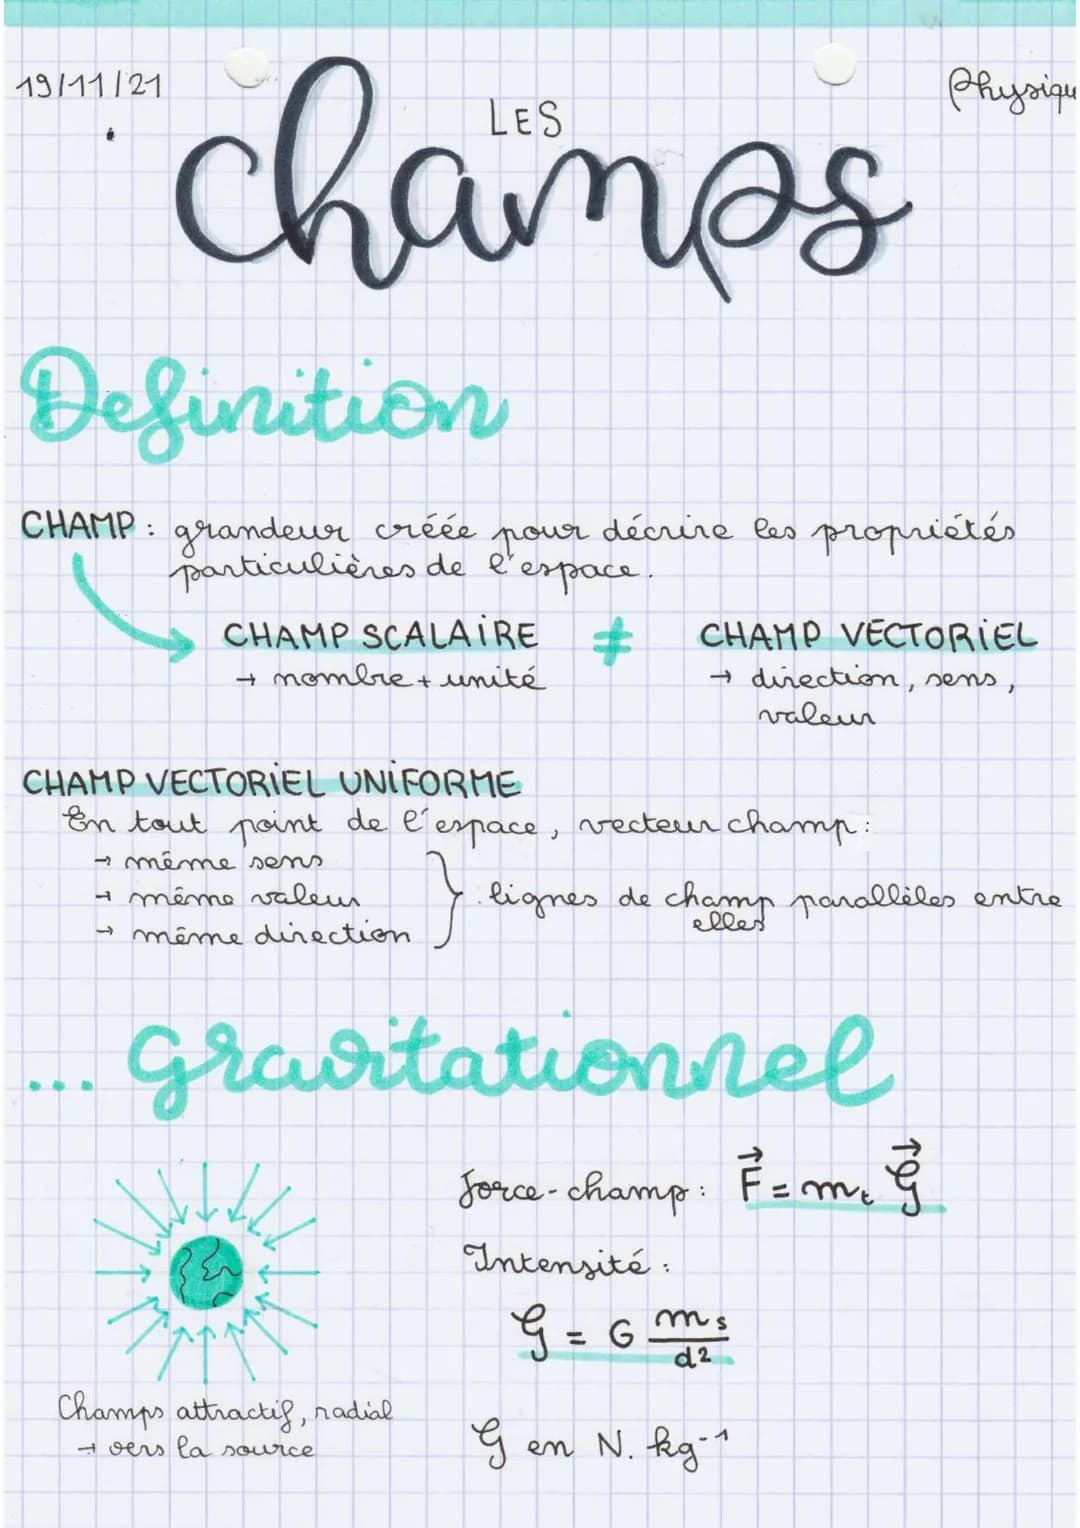 19/11/21
Physiqu
LES
champs
Definition
CHAMP : grandeur créée pour décrire les propriétés
particulières de l'espace.
CHAMP SCALAIRE ≠ CHAMP VECTORIEL
→ nombre + unité
→ direction, sens,
valeur
CHAMP VECTORIEL UNIFORME
En tout point de l'espace, vecteur champ :
→ même sens
→ même valeur
→ même direction
} lignes de champ parallèles entre
elles
... gravitationnel
force-champ : F⃗ = mₜ 𝒢⃗
Intensité :
𝒢 = G mₛ / d²
Champs attractif, radial
→ vers la source
𝒢 en N.kg⁻¹